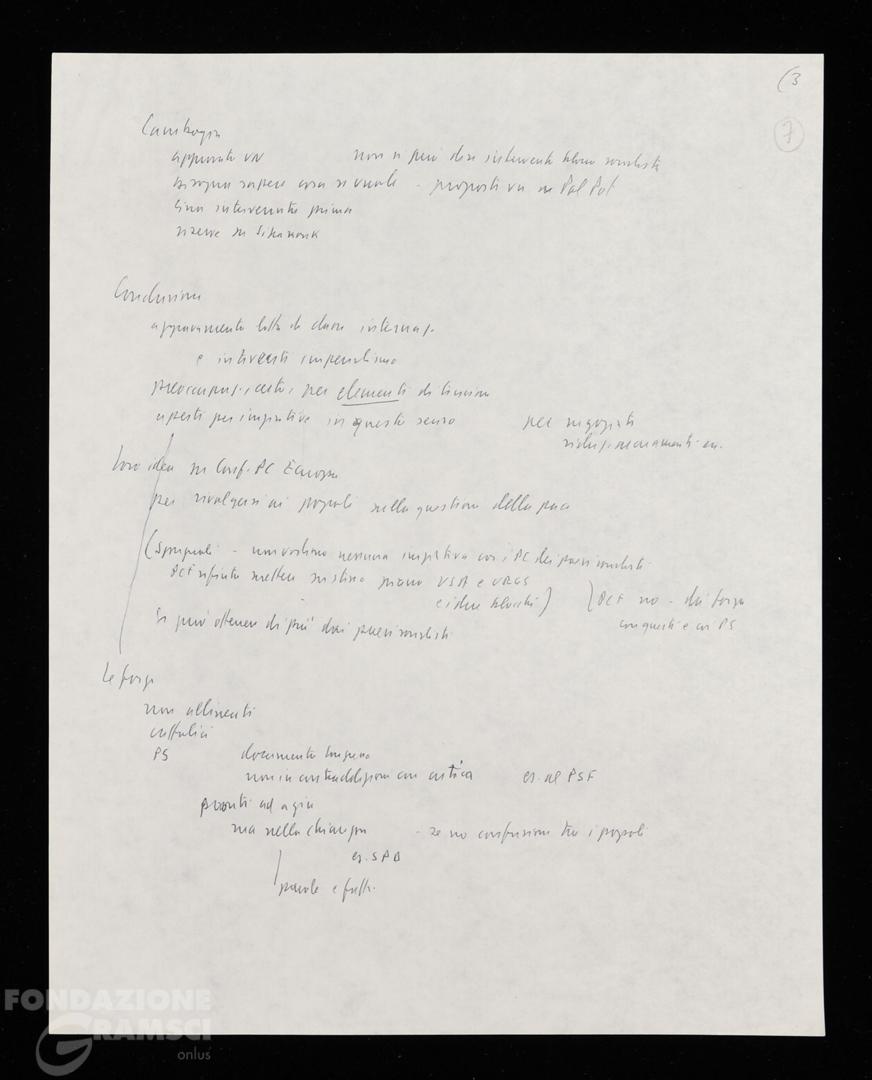 (3
7
Cambogia
appoggiato VN non si può dire intervento blocco socialista
bisogna sapere cosa si vuole - proposti VN su Pol Pot
Cina intervenuta prima
riserve su Sihanouk
Conclusione
aggravamento lotta di classe internaz.
e interventi imperialismo
preoccupaz., certo, per elementi di tensione
aperti per iniziative in questo senso per negoziati
riduz.
Loro idea su Conf. PC Europa
per rivolgersi ai popoli sulla questione della pace
(Spagnoli - non vogliono nessuna iniziativa con i PC dei paesi socialisti
PCI rifiuta mettere su stesso piano USA e URSS
e i due blocchi) PCF no - dai forza
con questi e con PS
Si può ottenere di più dai paesi socialisti
Le forze
non allineati
cattolici
PS documento
non in contraddizione con critica es. al PSF
pronti ad agire
ma nella chiarezza - se no confusione tra i popoli
es. SPD
parole e fatti
FONDAZIONE
GRAMSCI
onlus